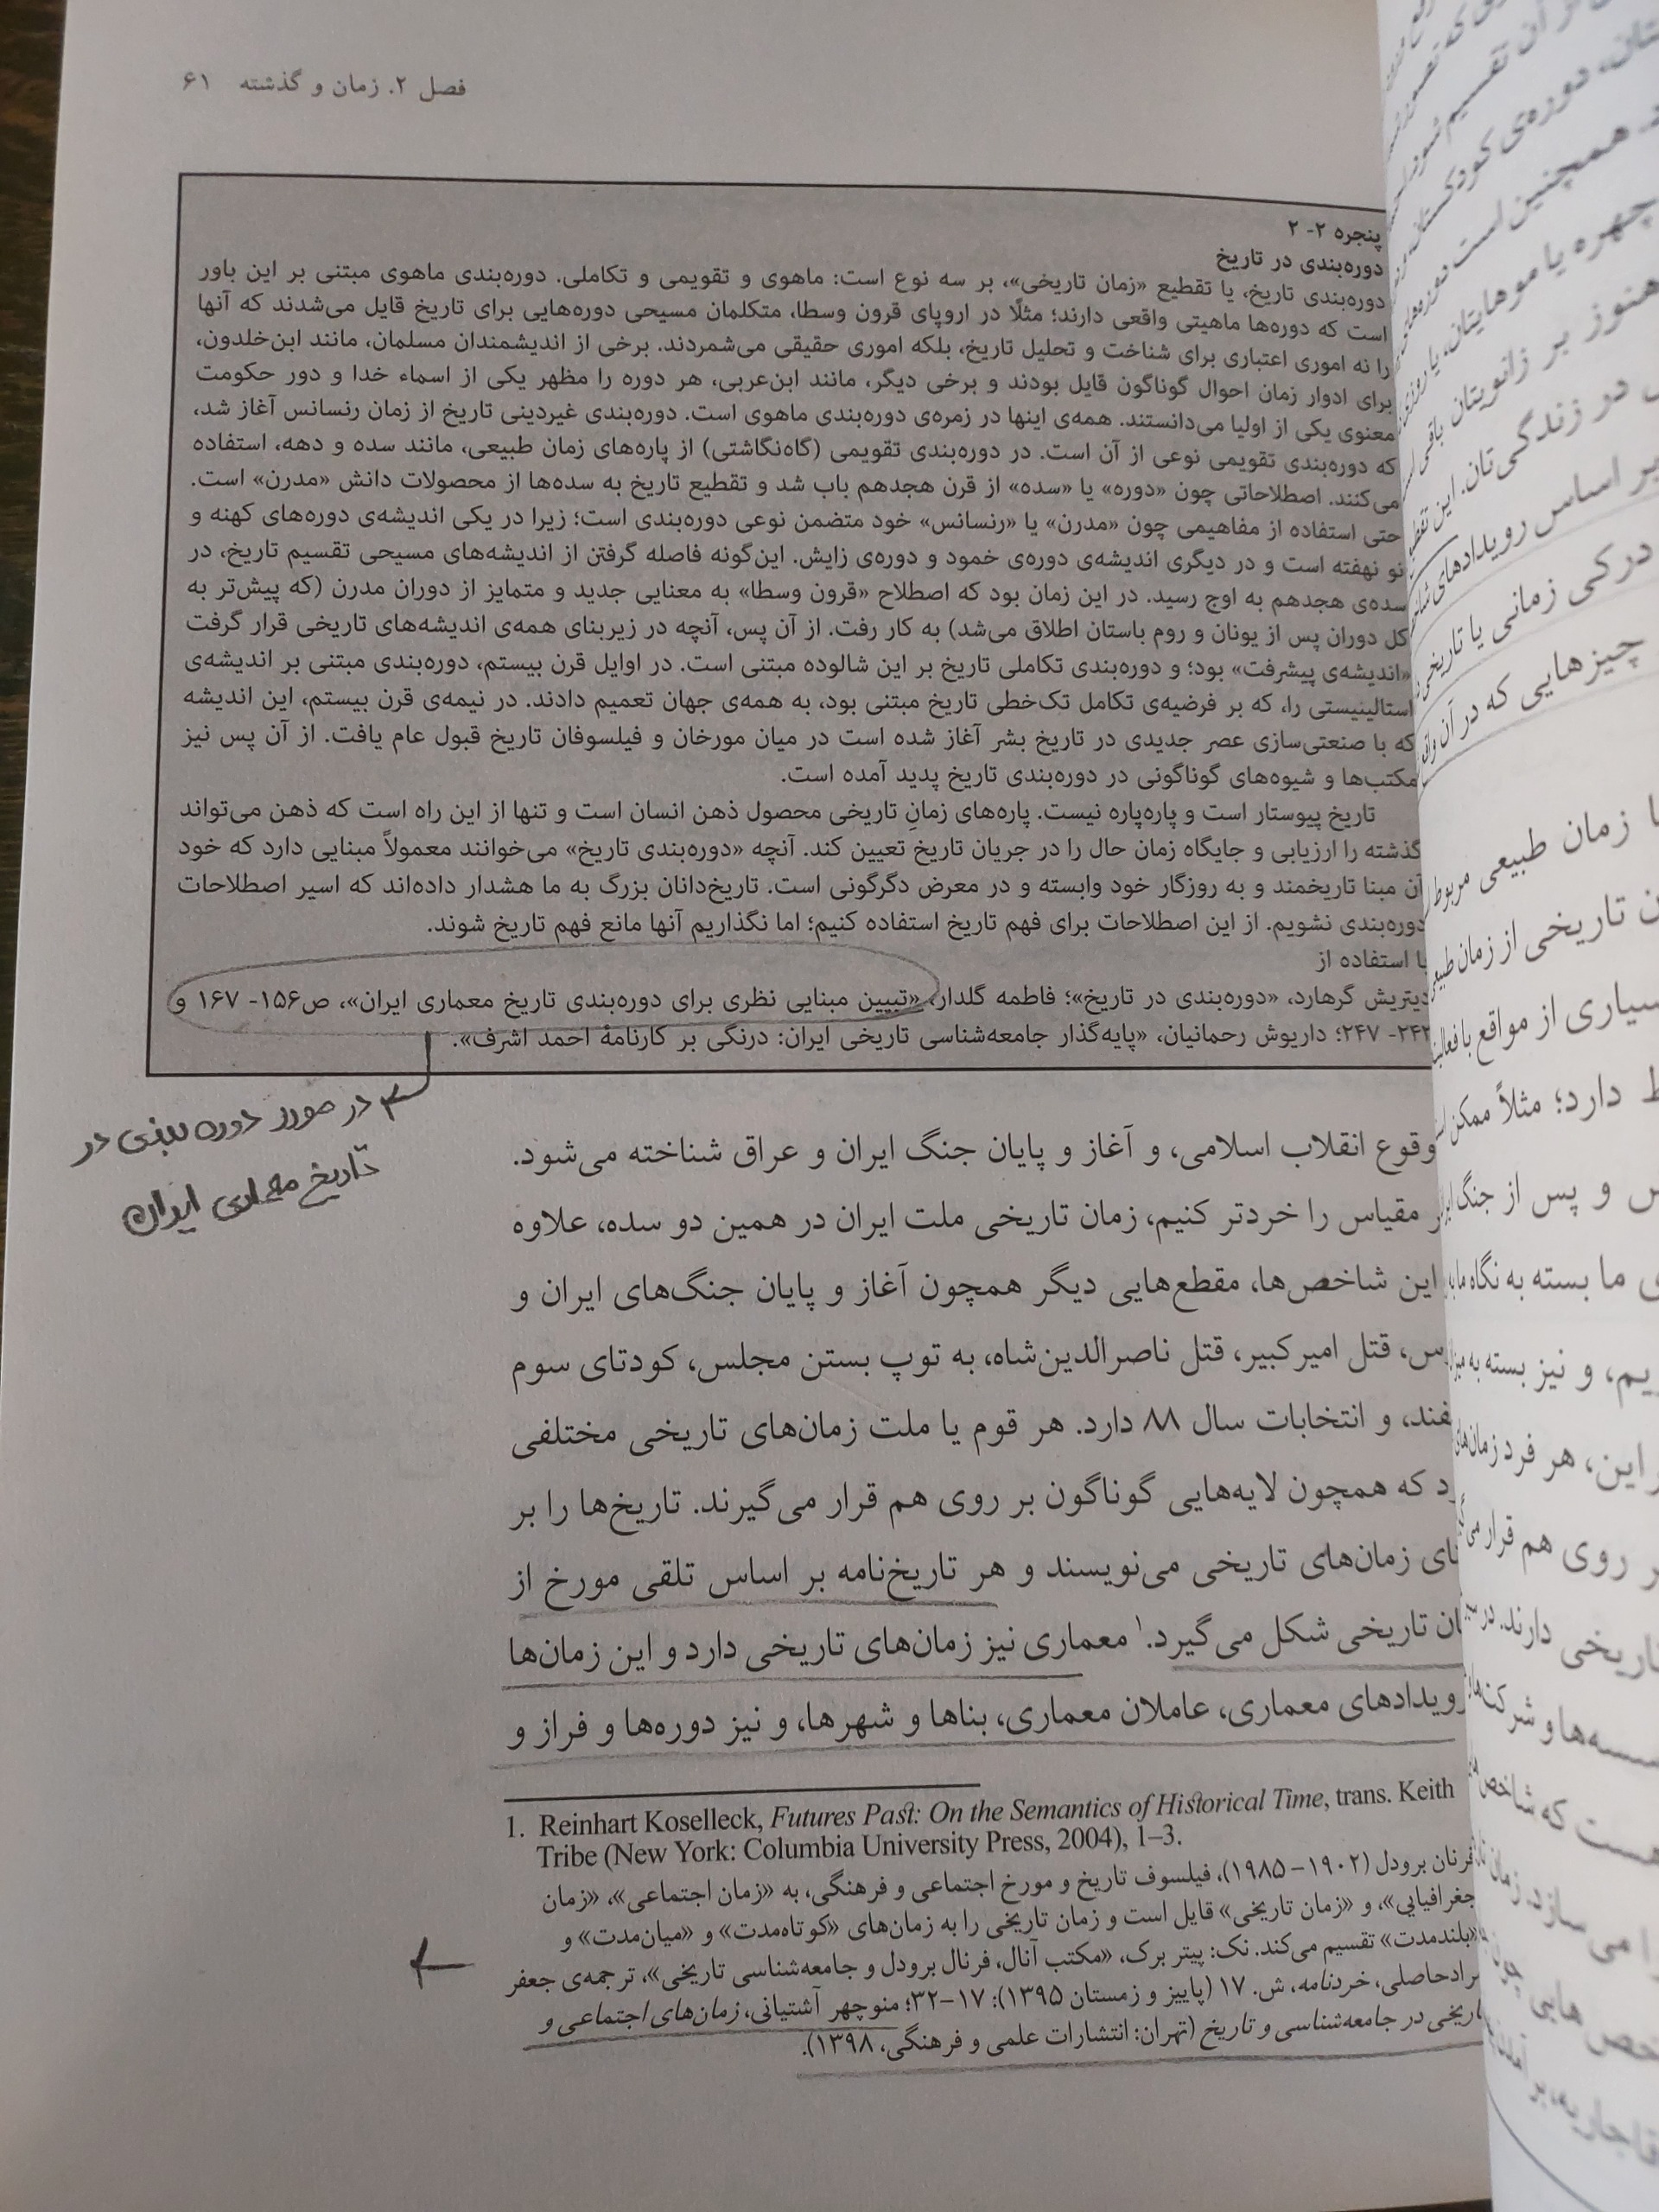 فصل ۲. زمان و گذشته ۶۱
پنجره ۲-۲
دوره‌بندی در تاریخ
دوره‌بندی تاریخ، یا تقطیع «زمان تاریخی»، بر سه نوع است: ماهوی و تقویمی و تکاملی. دوره‌بندی ماهوی مبتنی بر این باور
است که دوره‌ها ماهیتی واقعی دارند؛ مثلاً در اروپای قرون وسطا، متکلمان مسیحی دوره‌هایی برای تاریخ قایل می‌شدند که آنها
را نه اموری اعتباری برای شناخت و تحلیل تاریخ، بلکه اموری حقیقی می‌شمردند. برخی از اندیشمندان مسلمان، مانند ابن‌خلدون،
برای ادوار زمان احوال گوناگون قایل بودند و برخی دیگر، مانند ابن‌عربی، هر دوره را مظهر یکی از اسماء خدا و دور حکومت
معنوی یکی از اولیا می‌دانستند. همه‌ی اینها در زمره‌ی دوره‌بندی ماهوی است. دوره‌بندی غیردینی تاریخ از زمان رنسانس آغاز شد،
که دوره‌بندی تقویمی نوعی از آن است. در دوره‌بندی تقویمی (گاه‌نگاشتی) از پاره‌های زمان طبیعی، مانند سده و دهه، استفاده
می‌کنند. اصطلاحاتی چون «دوره» یا «سده» از قرن هجدهم باب شد و تقطیع تاریخ به سده‌ها از محصولات دانش «مدرن» است.
حتی استفاده از مفاهیمی چون «مدرن» یا «رنسانس» خود متضمن نوعی دوره‌بندی است؛ زیرا در یکی اندیشه‌ی دوره‌های کهنه و
نو نهفته است و در دیگری اندیشه‌ی دوره‌ی خمود و دوره‌ی زایش. این‌گونه فاصله گرفتن از اندیشه‌های مسیحی تقسیم تاریخ، در
سده‌ی هجدهم به اوج رسید. در این زمان بود که اصطلاح «قرون وسطا» به معنایی جدید و متمایز از دوران مدرن (که پیش‌تر به
کل دوران پس از یونان و روم باستان اطلاق می‌شد) به کار رفت. از آن پس، آنچه در زیربنای همه‌ی اندیشه‌های تاریخی قرار گرفت
«اندیشه‌ی پیشرفت» بود؛ و دوره‌بندی تکاملی تاریخ بر این شالوده مبتنی است. در اوایل قرن بیستم، دوره‌بندی مبتنی بر اندیشه‌ی
استالینیستی را، که بر فرضیه‌ی تکامل تک‌خطی تاریخ مبتنی بود، به همه‌ی جهان تعمیم دادند. در نیمه‌ی قرن بیستم، این اندیشه
که با صنعتی‌سازی عصر جدیدی در تاریخ بشر آغاز شده است در میان مورخان و فیلسوفان تاریخ قبول عام یافت. از آن پس نیز
مکتب‌ها و شیوه‌های گوناگونی در دوره‌بندی تاریخ پدید آمده است.
تاریخ پیوستار است و پاره‌پاره نیست. پاره‌های زمانِ تاریخی محصول ذهن انسان است و تنها از این راه است که ذهن می‌تواند
گذشته را ارزیابی و جایگاه زمان حال را در جریان تاریخ تعیین کند. آنچه «دوره‌بندی تاریخ» می‌خوانند معمولاً مبنایی دارد که خود
آن مبنا تاریخمند و به روزگار خود وابسته و در معرض دگرگونی است. تاریخ‌دانان بزرگ به ما هشدار داده‌اند که اسیر اصطلاحات
دوره‌بندی نشویم. از این اصطلاحات برای فهم تاریخ استفاده کنیم؛ اما نگذاریم آنها مانع فهم تاریخ شوند.
با استفاده از
دیتریش گرهارد، «دوره‌بندی در تاریخ»؛ فاطمه گلدار، «تبیین مبنایی نظری برای دوره‌بندی تاریخ معماری ایران»، ص۱۵۶- ۱۶۷ و
۲۴۷؛ داریوش رحمانیان، «پایه‌گذار جامعه‌شناسی تاریخی ایران: درنگی بر کارنامهٔ احمد اشرف».
در مورد دوره بندی در
تاریخ معماری ایران
وقوع انقلاب اسلامی، و آغاز و پایان جنگ ایران و عراق شناخته می‌شود.
مقیاس را خردتر کنیم، زمان تاریخی ملت ایران در همین دو سده، علاوه
این شاخص‌ها، مقطع‌هایی دیگر همچون آغاز و پایان جنگ‌های ایران و
قتل امیرکبیر، قتل ناصرالدین‌شاه، به توپ بستن مجلس، کودتای سوم
و انتخابات سال ۸۸ دارد. هر قوم یا ملت زمان‌های تاریخی مختلفی
که همچون لایه‌هایی گوناگون بر روی هم قرار می‌گیرند. تاریخ‌ها را بر
زمان‌های تاریخی می‌نویسند و هر تاریخ‌نامه بر اساس تلقی مورخ از
تاریخی شکل می‌گیرد.۱ معماری نیز زمان‌های تاریخی دارد و این زمان‌ها
رویدادهای معماری، عاملان معماری، بناها و شهرها، و نیز دوره‌ها و فراز و
1. Reinhart Koselleck, Futures Past: On the Semantics of Historical Time, trans. Keith
Tribe (New York: Columbia University Press, 2004), 1–3.
فرنان برودل (۱۹۰۲- ۱۹۸۵)، فیلسوف تاریخ و مورخ اجتماعی و فرهنگی، به «زمان اجتماعی»، «زمان
جغرافیایی»، و «زمان تاریخی» قایل است و زمان تاریخی را به زمان‌های «کوتاه‌مدت» و «میان‌مدت» و
«بلندمدت» تقسیم می‌کند. نک: پیتر برک، «مکتب آنال، فرنال برودل و جامعه‌شناسی تاریخی»، ترجمه‌ی جعفر
خردنامه، ش. ۱۷ (پاییز و زمستان ۱۳۹۵): ۱۷-۳۲؛ منوچهر آشتیانی، زمان‌های اجتماعی و
تاریخی در جامعه‌شناسی و تاریخ (تهران: انتشارات علمی و فرهنگی، ۱۳۹۸).